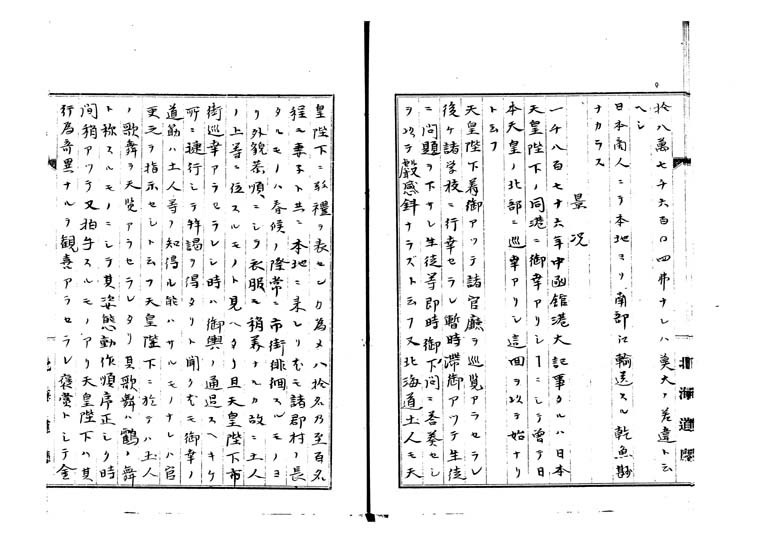 拾八萬七千六百〇四弗ナレハ莫大ノ差違ト云
ヘシ
日本商人ニヨリ本地ヨリ南部江輸送スル乾魚尠
ナカラス
景况
一千八百七十六年中函館港大記事タルハ日本
天皇陛下ノ同港ニ御幸アリシ1ニシテ曽テ日
本天皇ノ北部ニ巡幸アリシ這回ヲ以テ始ナリ
ト云フ
天皇陛下着御アツテ諸官廳ヲ巡覧アラセラレ
後ケ諸学校ニ行幸セラレ暫時滞御アツテ生徒
ニ問題ヲ下サレ生徒等即時御下問ニ答奏セシ
ヲ以テ叡感斜ナラズト云フ又北海道土人モ天
皇陛下ニ敬禮ヲ表センカ為メ八拾名乃至百名
程モ妻子ト共ニ本地ニ来レリ尤モ諸郡村ノ長
タルモノハ春候ノ際常ニ市街徘徊スルモノヨ
リ外貌荼順ニシテ衣服モ稍美ナルカ故ニ土人
ノ上等ニ位スルモノト見ヘタリ且天皇陛下市
街巡幸アラセラレシ時ハ御輿ノ通過スヘキケ
所ニ連行シテ拝謁ヲ得タリト聞ク尤モ御幸ノ
道筋ハ土人等ノ知得ル能ハサルモノナレハ官
吏之ヲ指示セシト云フ天皇陛下ニ於テハ土人
ノ歌舞ヲ天覧アラセラレタリ其歌舞ハ鶴ノ舞
ト称スルモノニシテ其姿態動作順序正シク時
間稍アツテ又拍手スルモノアリ天皇陛下ハ其
行為奇異ナルヲ観喜アラセラレ褒賞トシテ金